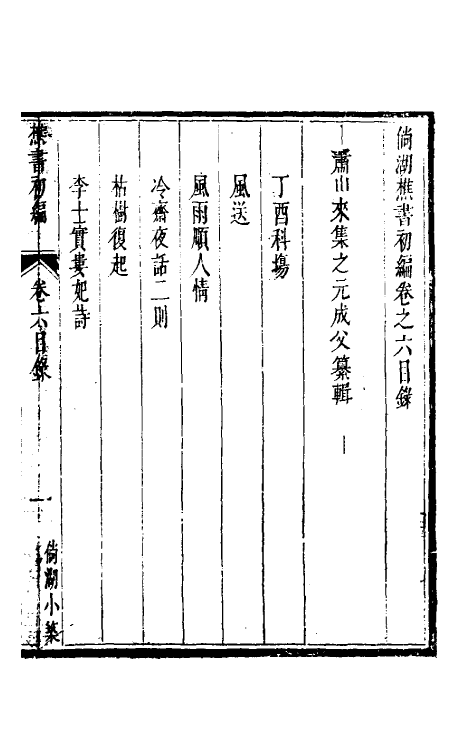 倘湖樵書初編卷之六目錄
蕭山來集之元成父纂輯
丁酉科場
風送
風雨順人情
冷齋夜話二則
枯樹復起
李士實婁妃詩
樵書初編
卷六目錄
一
倘湖小築